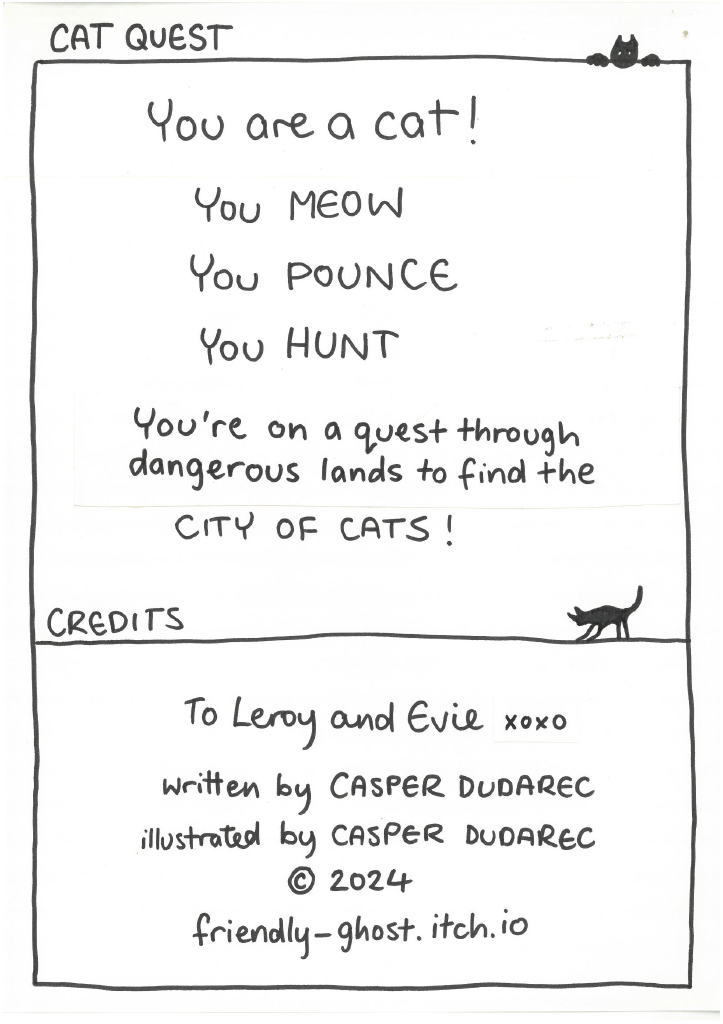 CAT QUEST
You are a cat!
You MEOW
You POUNCE
You HUNT
You're on a quest through
dangerous lands to find the
CITY OF CATS!
CREDITS
To Leroy and Evie xoxo
written by CASPER DUDAREC
illustrated by CASPER DUDAREC
© 2024
friendly-ghost.itch.io